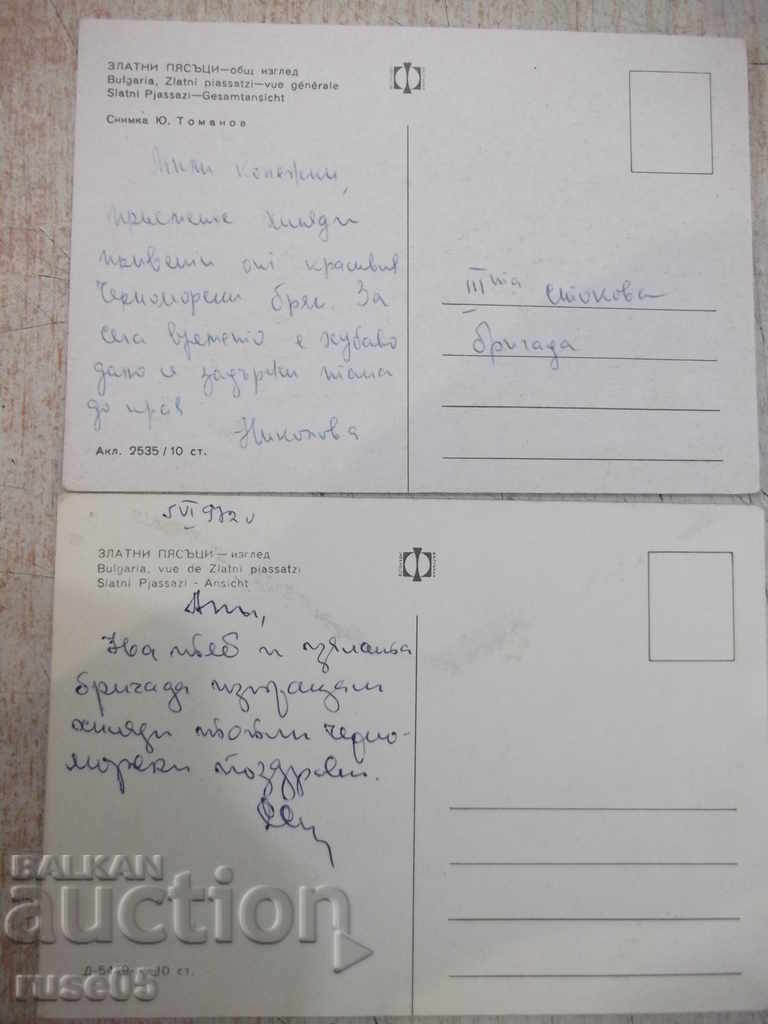 ЗЛАТНИ ПЯСЪЦИ—общ изглед
Bulgaria, Zlatni piassatzi—vue générale
Slatni Pjassazi—Gesamtansicht
Снимка Ю. Томанов
Мили колежки,
приемете хиляди
привети от красивия
Черноморски бряг. За
сега времето е хубаво
дано се задържи така
до края
Николова
Акл. 2535/10 ст.
IIIта Стокова
бригада
5 VI 972 г
ЗЛАТНИ ПЯСЪЦИ—изглед
Bulgaria, vue de Zlatni piassatzi
Slatni Pjassazi - Ansicht
На теб и цялата
бригада изпращам
хиляди топли черно-
морски поздрави.
10 ст.
BALKAN
auction
ruse05